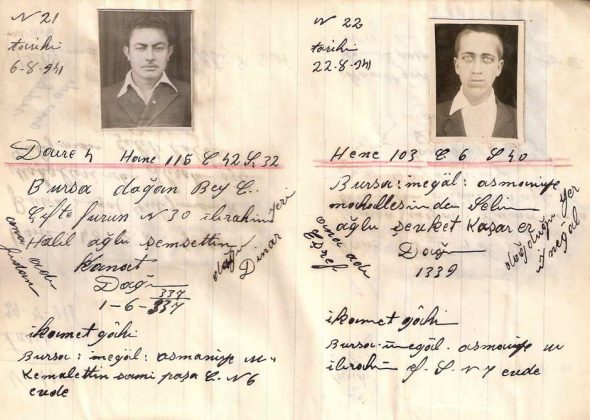 N 21
tarihi
6-8-941
Daire 4 Hane 115 C 42 S 32
Bursa doğan Bey C.
Çifte furun N 30 ibrahim
Halil oğlu şemsettin
Kanat
Doğu
337
1-6-337
ana adı
doğ yeri
Dinar
ikamet gâhi
Bursa: inegöl: osmaniye M.
Kemalettin sami paşa C. N 6
evde
N 22
tarihi
22-8-941
Hene 103 C. 6 S 40
Bursa: inegöl: osmaniye
mahallesinden Selim
oğlu şevket Kaşar er
Doğu
1339
ana adı
Eşref
doğduğu yer
inegöl
ikamet gâhi
Bursa-inegöl. osmaniye M
ibrahim ef. S. N 7 evde